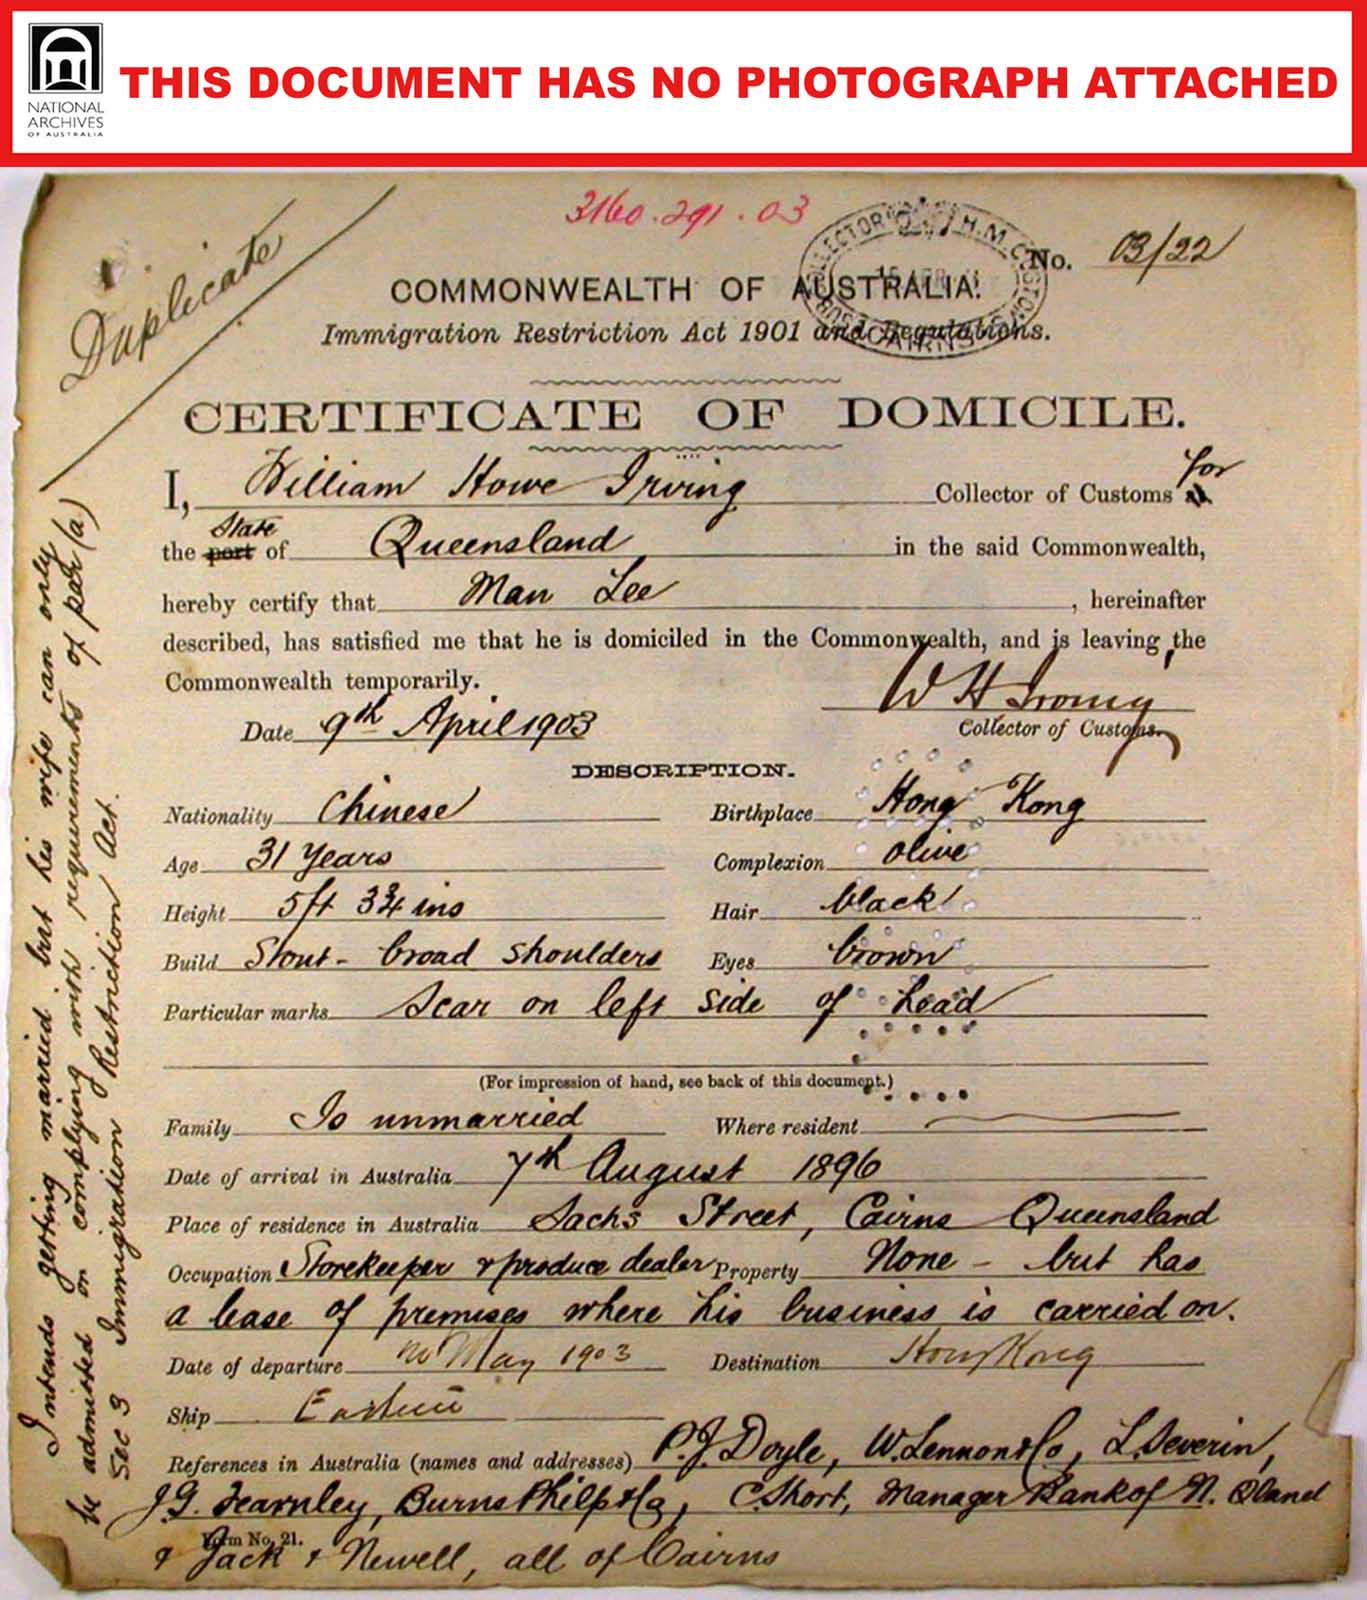 NATIONAL
ARCHIVES
OF AUSTRALIA
THIS DOCUMENT HAS NO PHOTOGRAPH ATTACHED
3160.291.03
COLLECTOR H.M. CUSTOMS
CAIRNS
No. 03/22
Duplicate
COMMONWEALTH OF AUSTRALIA.
Immigration Restriction Act 1901 and Regulations.
CERTIFICATE OF DOMICILE.
for
I, William Howe Irving Collector of Customs
State
the port of Queensland in the said Commonwealth,
hereby certify that Man Lee, hereinafter
described, has satisfied me that he is domiciled in the Commonwealth, and is leaving the
Commonwealth temporarily.
W H Irving
Date 9th April 1903
Collector of Customs.
DESCRIPTION.
Nationality Chinese Birthplace Hong Kong
Age 31 Years Complexion olive
Height 5ft 3¾ ins Hair black
Build Stout - broad shoulders Eyes brown
Particular marks Scar on left side of head
(For impression of hand, see back of this document.)
Family Is unmarried Where resident
Date of arrival in Australia 7th August 1896
Place of residence in Australia Sachs Street, Cairns Queensland
Occupation Storekeeper & produce dealer Property None - but has
a lease of premises where his business is carried on.
Date of departure May 1903 Destination Hong Kong
Ship Eastern
References in Australia (names and addresses) P.J. Doyle, W. Lennon & Co, L. Severin,
J.G. Fearnley, Burns Philp & Co, C. Short, Manager Bank of N. Qland
Form No. 21.
& Jack & Newell, all of Cairns
Intends getting married but his wife can only
be admitted on complying with requirements of par (a)
Sec 3 Immigration Restriction Act.